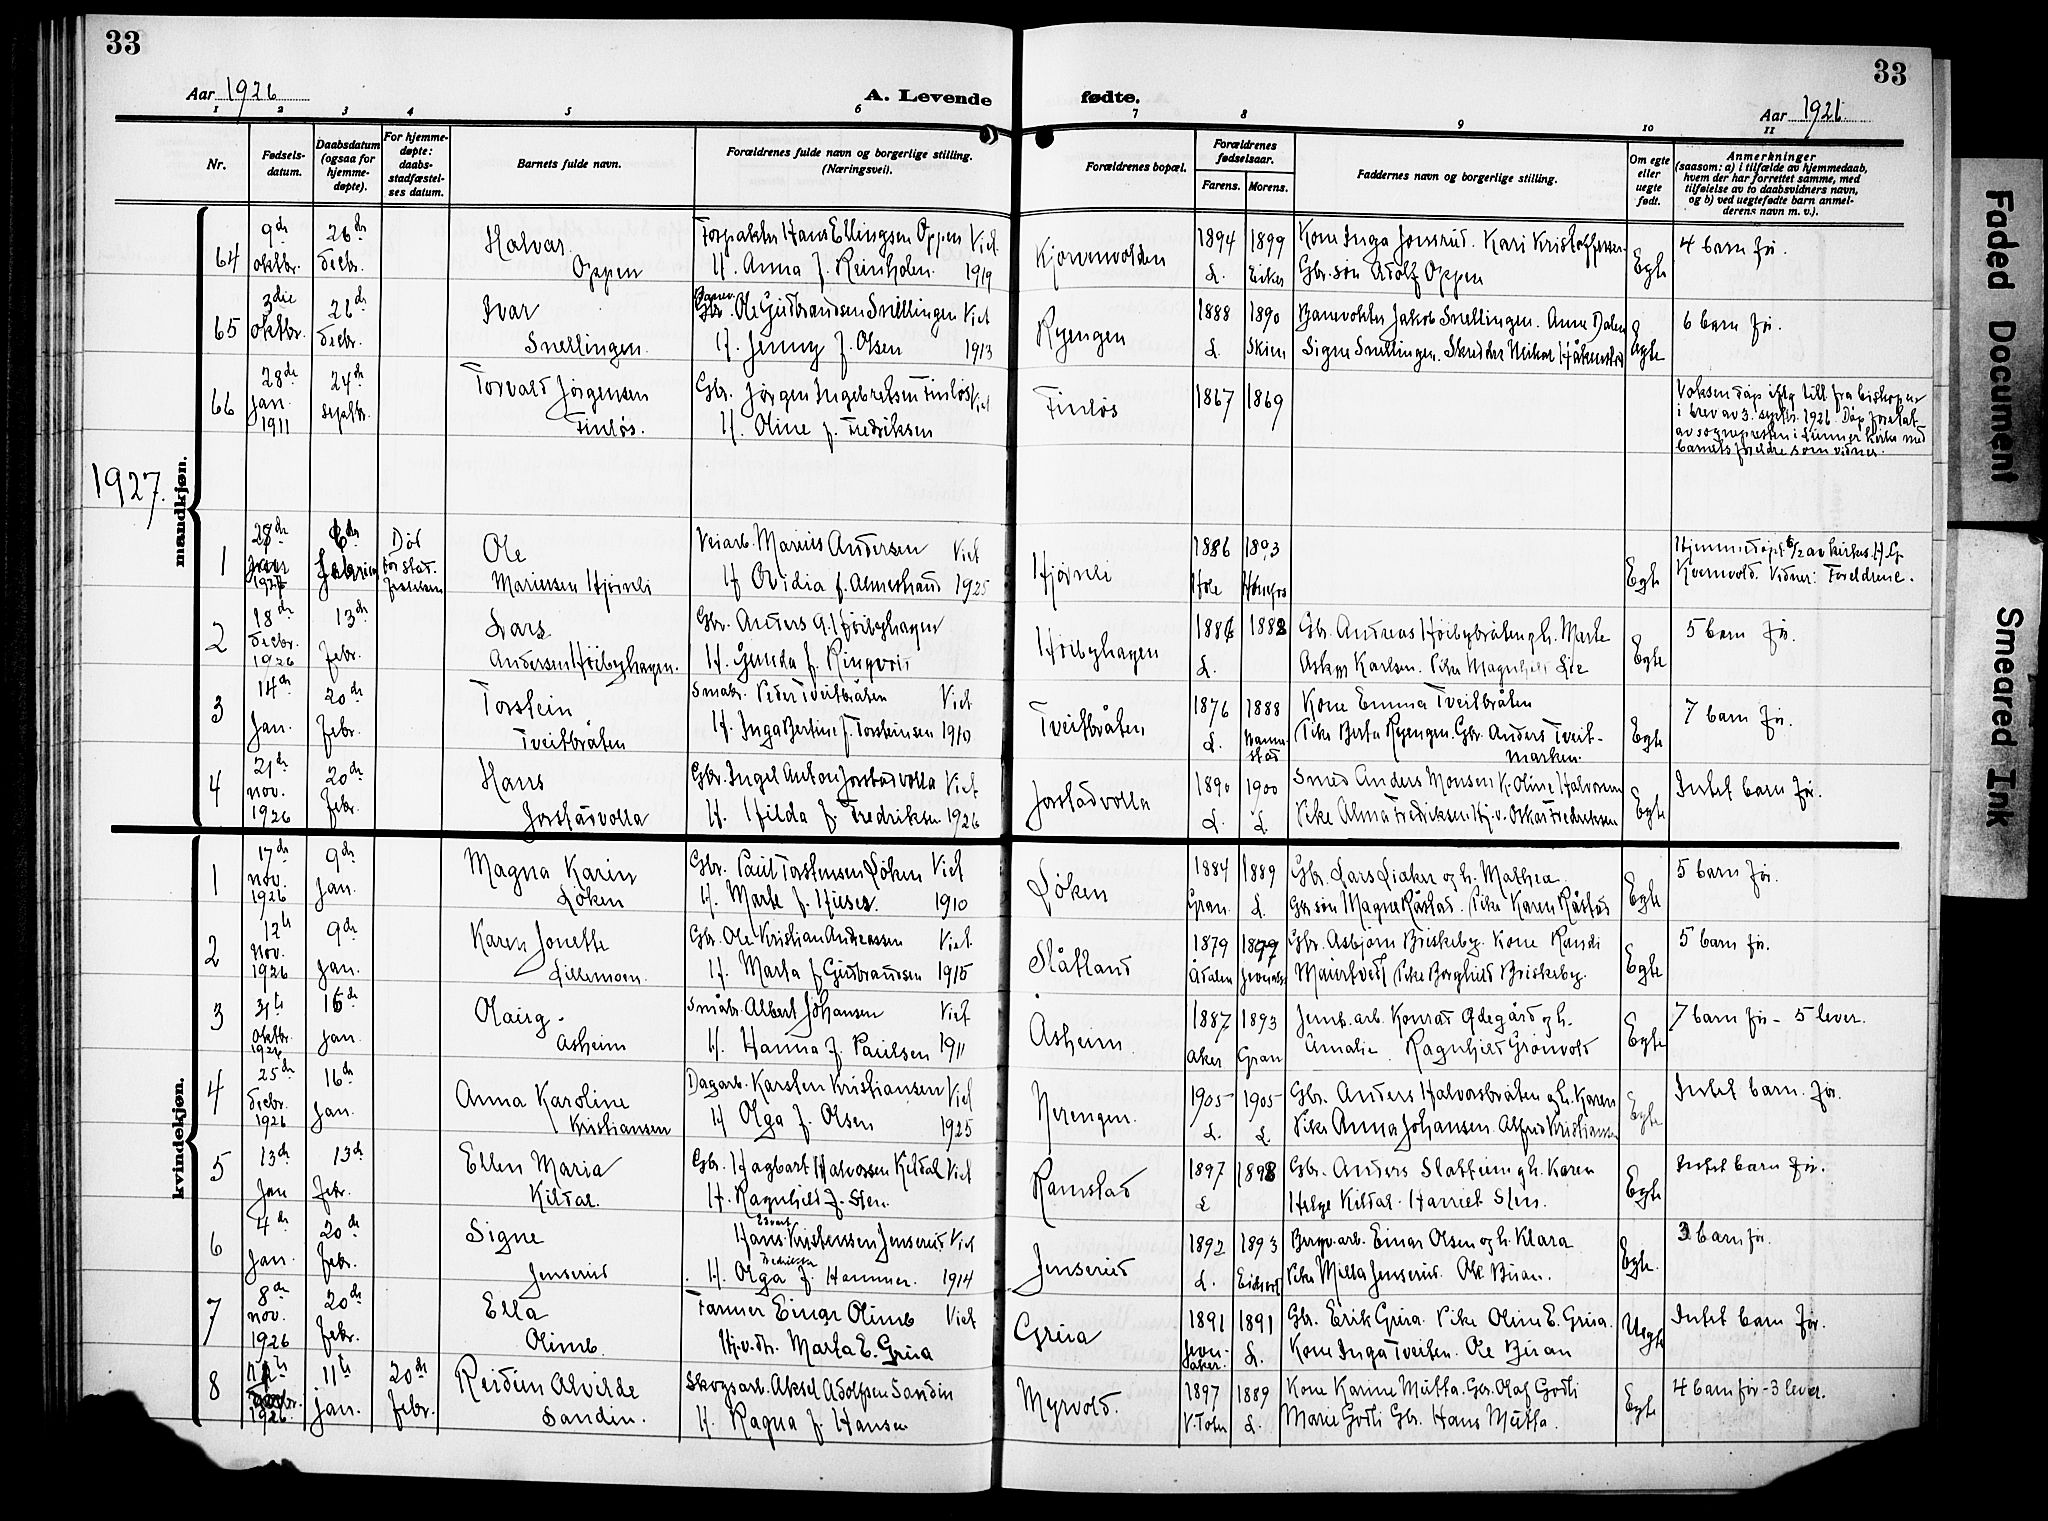 33
33
Aar 1926
A. Levende
fødte.
Aar 1926
1 2 3 4 5 6 7 8 9 10 11
Nr.
Fødsels-
datum.
Daabsdatum
(ogsaa for
hjemme-
døpte).
For hjemme-
døpte:
daabs-
stadfæstel-
ses datum.
Barnets fulde navn.
Forældrenes fulde navn og borgerlige stilling.
(Næringsvei).
Forældrenes bopæl.
Forældrenes
fødselsaar.
Farens. Morens.
Faddernes navn og borgerlige stilling.
Om egte
eller
uegte
født.
Anmerkninger
(saasom: a) i tilfælde av hjemmedaab,
hvem der har forrettet samme, med
tilføielse av to daabsvidners navn,
og b) ved uegtefødte barn anmel-
derens navn m. v.).
mandkjøn.
64
9de
oktbr.
26de
decbr.
Halvar
Oppen
Forpakter Hans Ellingsen Oppen Viet
H. Anna f. Reinholen. 1919
Kjørenvolden
1894 1899
L. Eiker
Kone Inga Jonsrud. Kari Kristoffersen
Gbr.søn Adolf Oppen
Egte
4 barn før.
65
3die
oktbr.
26de
decbr.
Ivar
Snellingen.
Banev.
Gbr. Ole Gudbrandsen Snellingen Viet
H. Jenny f. Olsen 1913
Ryengen
1888 1890
L. Skien
Banevokter Jakob Snellingen. Anne Dalen
Signe Snellingen. Skredder Mikal Håkenstad
Egte
6 barn før.
66
28de
jan.
1911
24de
septbr.
Torvald Jørgensen
Finløs.
Gbr. Jørgen Ingebretsen Finløs Viet
H. Oline f. Fredriksen
Finløs
1867 1869
Voksendåp iflg. till. fra biskopen
i brev av 3. septbr. 1926. Dåp foretat
av sognepresten i Lunner kirke med
barnets foreldre som vidner.
1927.
1
27de
jan
1927
6de
februar
Død
før stad-
festelsen
Ole
Mariussen Hjørnli
Veiarb. Marius Andersen Viet
H Ovidia f. Almestrand 1925
Hjørnli
1886 1893
Hole Hønefos
Egte
Hjemmedøpt 6/2 av kirkes. H. G.
Kvernvold. Vidner: Foreldrene.
2
18de
decbr.
1926
13de
febr.
Lars
Andersen Høibyhagen.
Gbr. Anders A. Høibyhagen
H. Gunda f. Ringvold
Høibyhagen
1886 1888
L.
Gbr. Andreas Høibybråten og h. Marte
Pike Magnhild Lie
Egte
5 barn før.
3
14de
jan.
20de
febr.
Torstein
Tveitbråten
Småbr. Peder Tveitbråten Viet
H. Inga Bertine f. Torsteinsen 1910
Tveitbråten
1876 1888
L.
Kone Emma Tveitbråten
Pike Berta Ryengen. Gbr. Anders Tveit-
marken.
Egte
7 barn før.
4
21de
nov.
1926
20de
febr.
Hans
Jorstadvolla
Gbr. Ingel Anton Jorstadvolla Viet
H. Hilda f. Fredriksen 1926
Jorstadvolla
1890 1900
L. L.
Smed Anders Monsen K. Oline Halvorsen
Pike Alma Fredriksen Hj.v. Oskar Fredriksen
Egte
Intet barn før.
kvindekjøn.
1
17de
nov.
1926
9de
jan.
Magna Karin
Løken
Gbr. Paul Torstensen Løken Viet
H. Marte f. Huser. 1910
Løken
1884 1889
Gran. L.
Gbr. Lars Liaker og h. Mathea.
Gbr.søn Magne Råstad. Pike Karen Råstad
Egte
5 barn før.
2
12te
nov.
1926
9de
jan.
Karen Jonette
Lillemoen.
Gbr. Ole Kristian Andreassen Viet.
H. Marta f Gudbrandsen 1915
Slåtland
1879 1897
Ådalen Jevnaker
Gbr. Asbjørn Briskeby. Kone Randi
Pike Borghild Briskeby.
Egte
5 barn før.
3
31te
oktbr.
1926
16de
jan.
Olaug.
Åsheim
Småbr. Albert Johansen Viet
H. Hanna f. Paulsen 1911
Åsheim
1887 1893
Aker Gran
Jernb.arb. Konrad Ødegård og h.
Amalie. Ragnhild Grønvold
Egte
7 barn før - 5 lever.
4
25de
decbr.
1926
16de
jan.
Anna Karoline
Kristiansen
Dagarb. Karsten Kristiansen Viet
H Olga f. Olsen 1925
Nerengen.
1905 1905
L. L.
Gbr. Anders Halvorsbråten og h. Karen
Pike Anna Johansen. Alfred Kristiansen
Egte
Intet barn før.
5
13de
jan
13de
febr.
Ellen Maria
Kildal.
Gbr. Hagbart Halvorsen Kildal Viet
H. Ragnhild f. Sten.
Ramstad
1897 1898
L
Gbr. Anders Slattum og h. Karen
Helge Kildal. Harriet Sten.
Egte
Intet barn før.
6
4de
jan.
20de
febr.
Signe
Jenserud
Edvart
Hans Kristensen Jenserud Viet
Fredriksen
H. Olga f. Hammer. 1914
Jenserud
1892 1893
L. Eidsvol
Bergv.arb. Einar Olsen og h. Klara
Pike Milla Jenserud. Ole Buan.
Egte.
3 barn før.
7
8de
nov.
1926
20de
febr.
Ella
Olimb.
Farmer Einar Olimb Viet
Hj.v.dt. Marta E. Grua
Grua
1891 1891
Jevn-
aker. L.
Gbr. Erik Grua. Pike Oline E. Grua.
Kone Inga Tveiten. Ole Buan
Uegte
Intet barn før.
8
1926
11te
jan.
20de
febr.
Reidun Alvilde
Sandin.
Skogsarb. Aksel Adolfsen Sandin
H. Ragna f Hansen
Myrvold.
1897 1889
V. Toten L.
Kone Karine Mutta. Gbr. Olaf Godli
Marie Godli Gbr. Hans Mutta.
Egte
4 barn før - 3 lever.
Faded Document
Smeared Ink